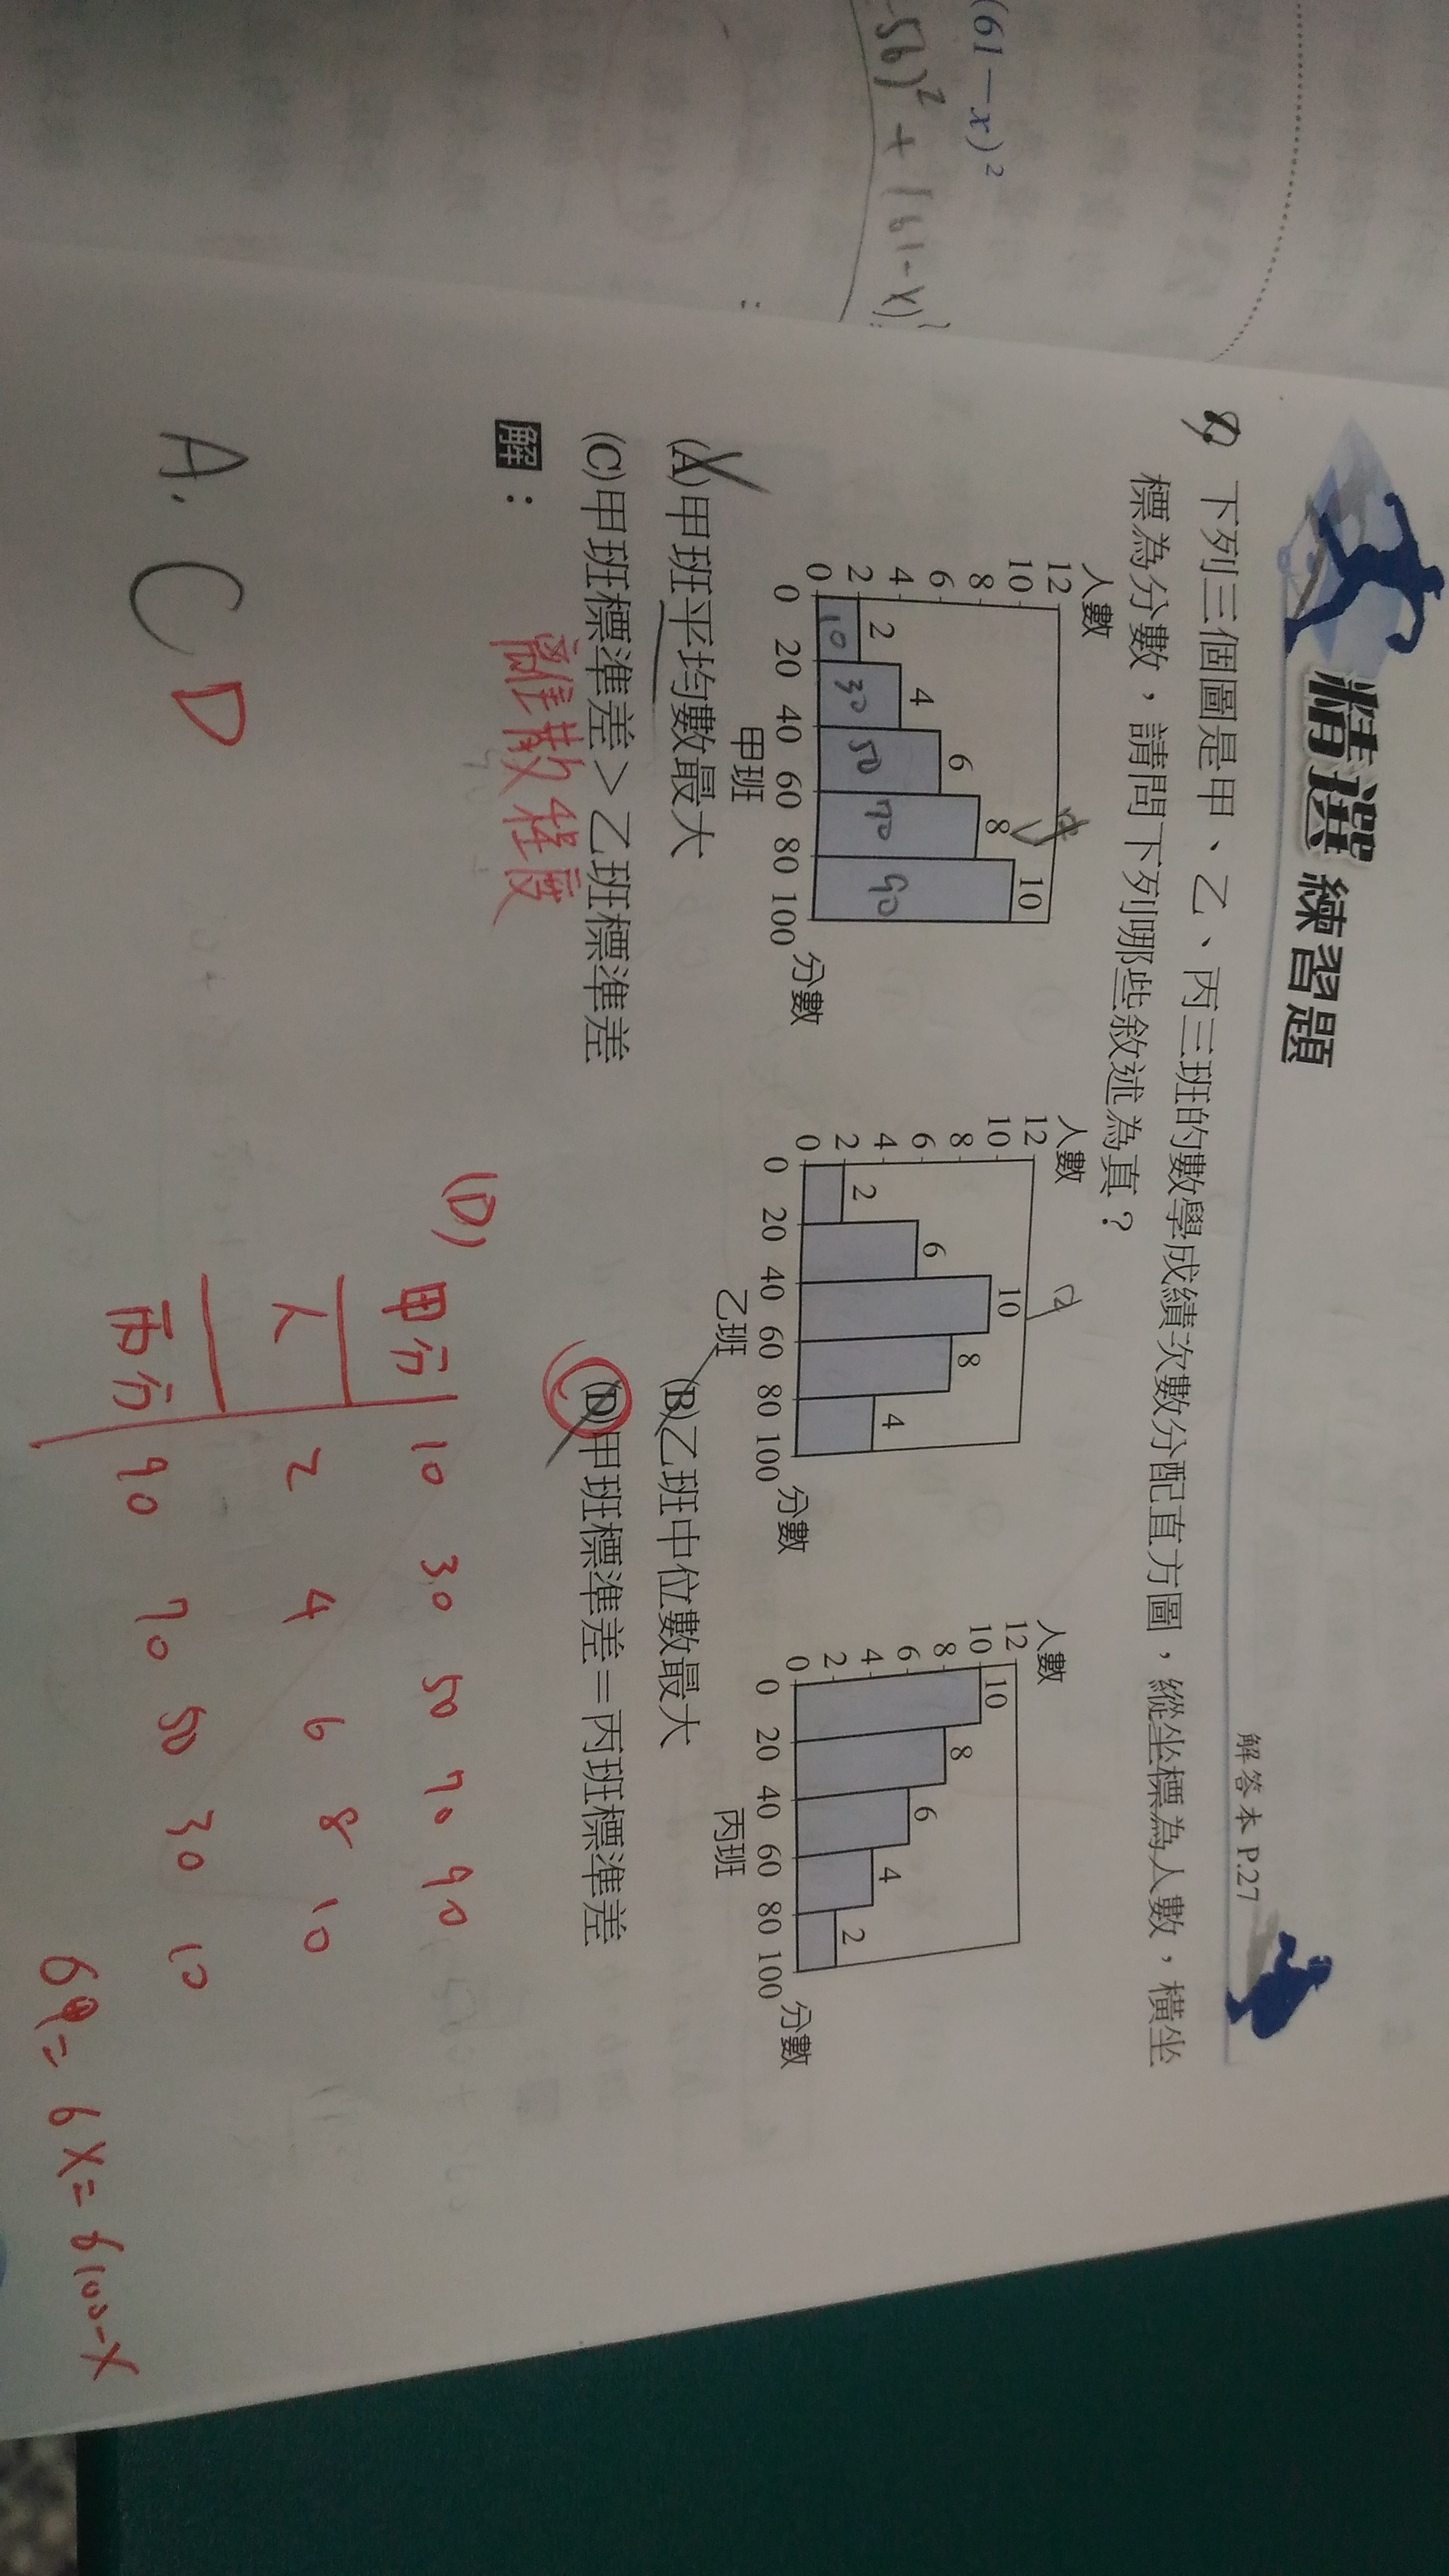 (61－x)²
-56)² + (61-x)²
精選 練習題
解答本 P.27
下列三個圖是甲、乙、丙三班的數學成績次數分配直方圖，縱坐標為人數，橫坐
標為分數，請問下列哪些敘述為真？
人數
12
10
8
6
4
2
0
2
4
6
8
10
10
30
50
70
90
0 20 40 60 80 100 分數
甲班
人數
12
10
8
6
4
2
0
2
6
10
8
4
0 20 40 60 80 100 分數
乙班
人數
12
10
8
6
4
2
0
10
8
6
4
2
0 20 40 60 80 100 分數
丙班
(A)甲班平均數最大 (B)乙班中位數最大
(C)甲班標準差＞乙班標準差 (D)甲班標準差＝丙班標準差
離散程度
解：
A. C D
(D)
甲分 10 30 50 70 90
人 2 4 6 8 10
丙分 90 70 50 30 10
6x = 6100-x